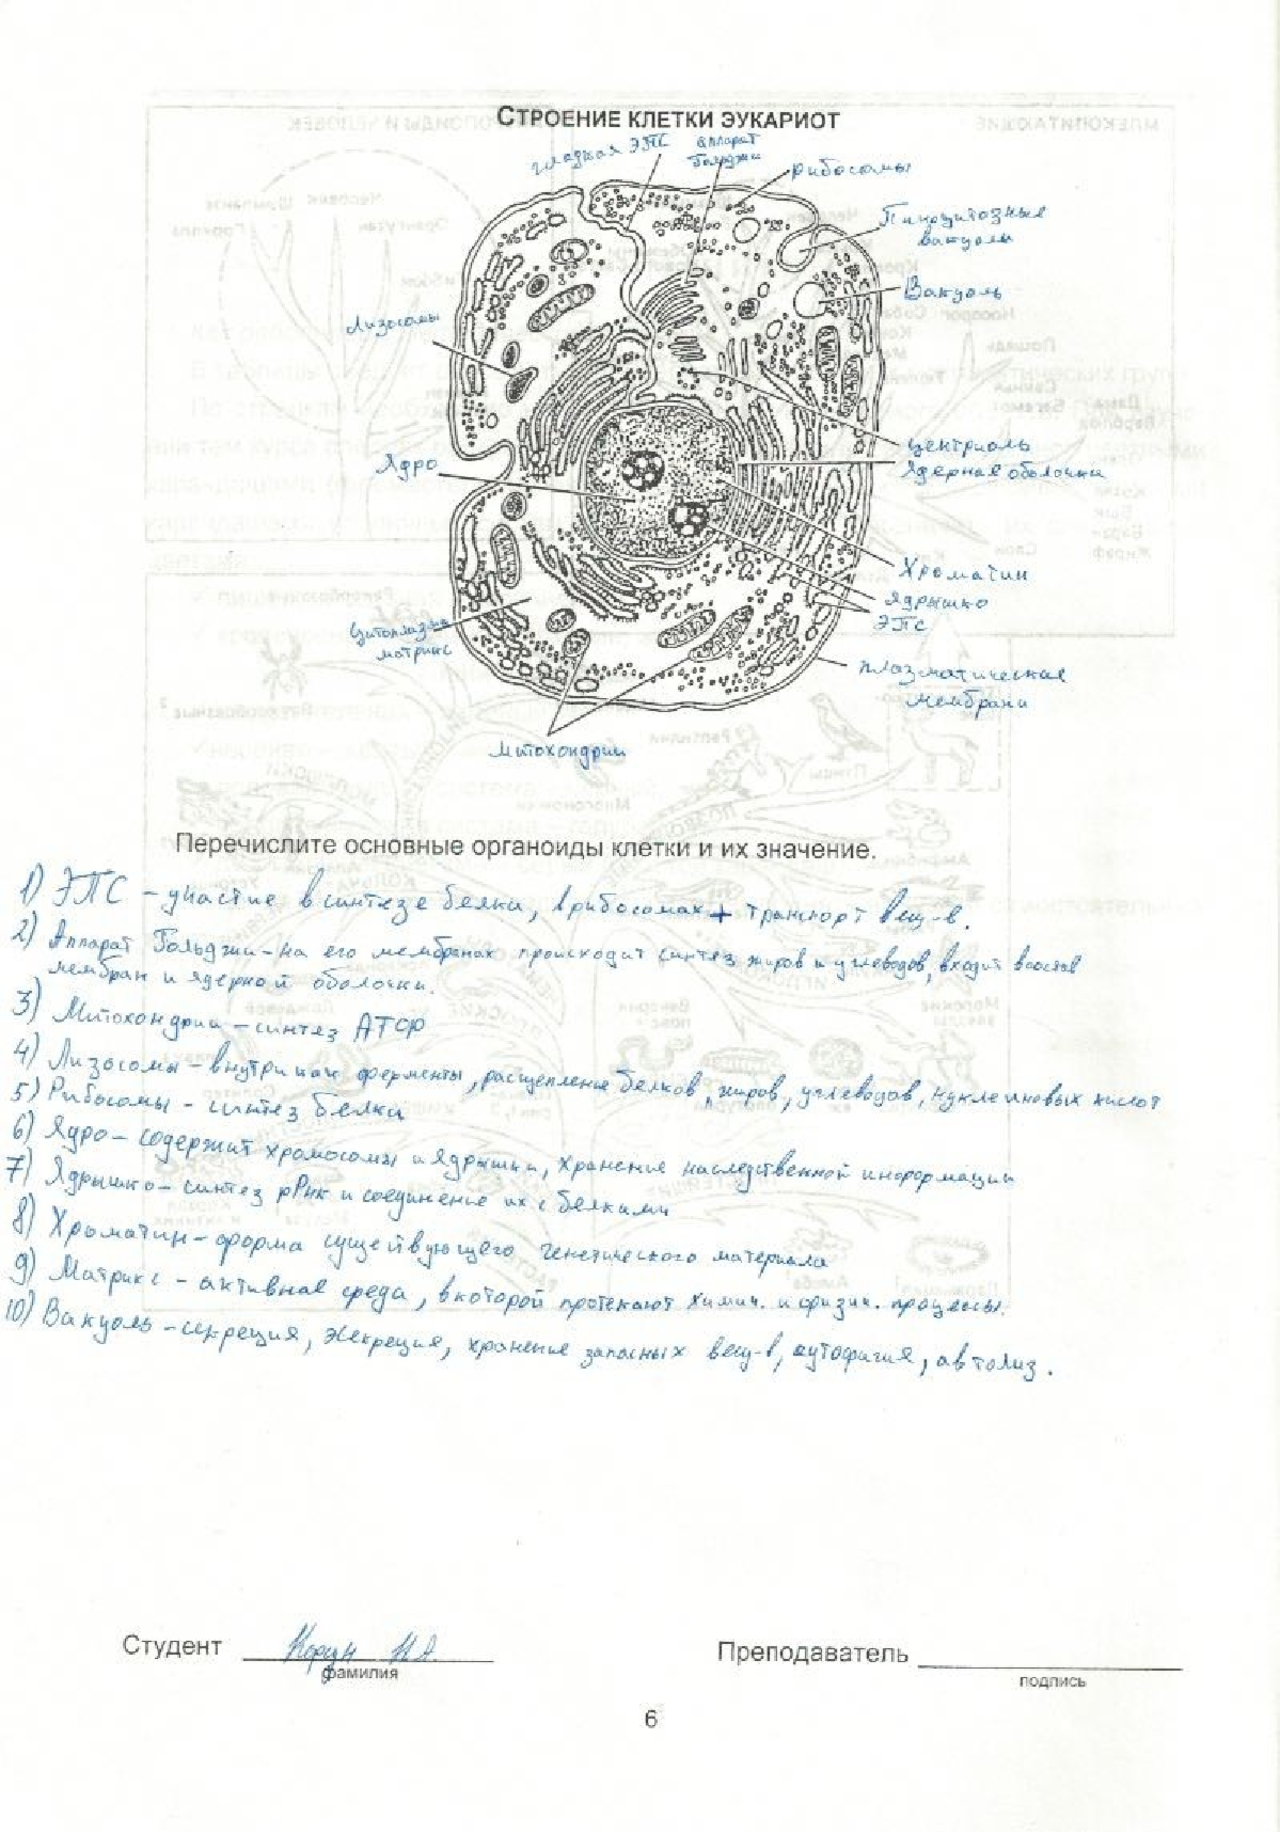 СТРОЕНИЕ КЛЕТКИ ЭУКАРИОТ
гладкая ЭПС
аппарат
Гольджи
рибосомы
Пиноцитозные
вакуоли
Вакуоль
Лизосомы
Ядро
центриоль
Ядерная оболочка
Хроматин
Ядрышко
ЭПС
Цитоплазма
матрикс
плазматическая
мембрана
Митохондрии
Перечислите основные органоиды клетки и их значение.
1) ЭПС - участие в синтезе белка, в рибосомах + транспорт вещ-в.
2) Аппарат Гольджи - на его мембранах происходит синтез жиров и углеводов, входит в состав
мембран и ядерной оболочки.
3) Митохондрии - синтез АТФ
4) Лизосомы - внутри них ферменты, расщепление белков, жиров, углеводов, нуклеиновых кислот
5) Рибосомы - синтез белка
6) Ядро - содержит хромосомы и ядрышки, хранение наследственной информации
7) Ядрышко - синтез рРНК и соединение их с белками
8) Хроматин - форма существующего генетического материала
9) Матрикс - активная среда, в которой протекают химич. и физич. процессы.
10) Вакуоль - секреция, экскреция, хранение запасных вещ-в, аутофагия, автолиз.
Студент
фамилия
Преподаватель
подпись
6